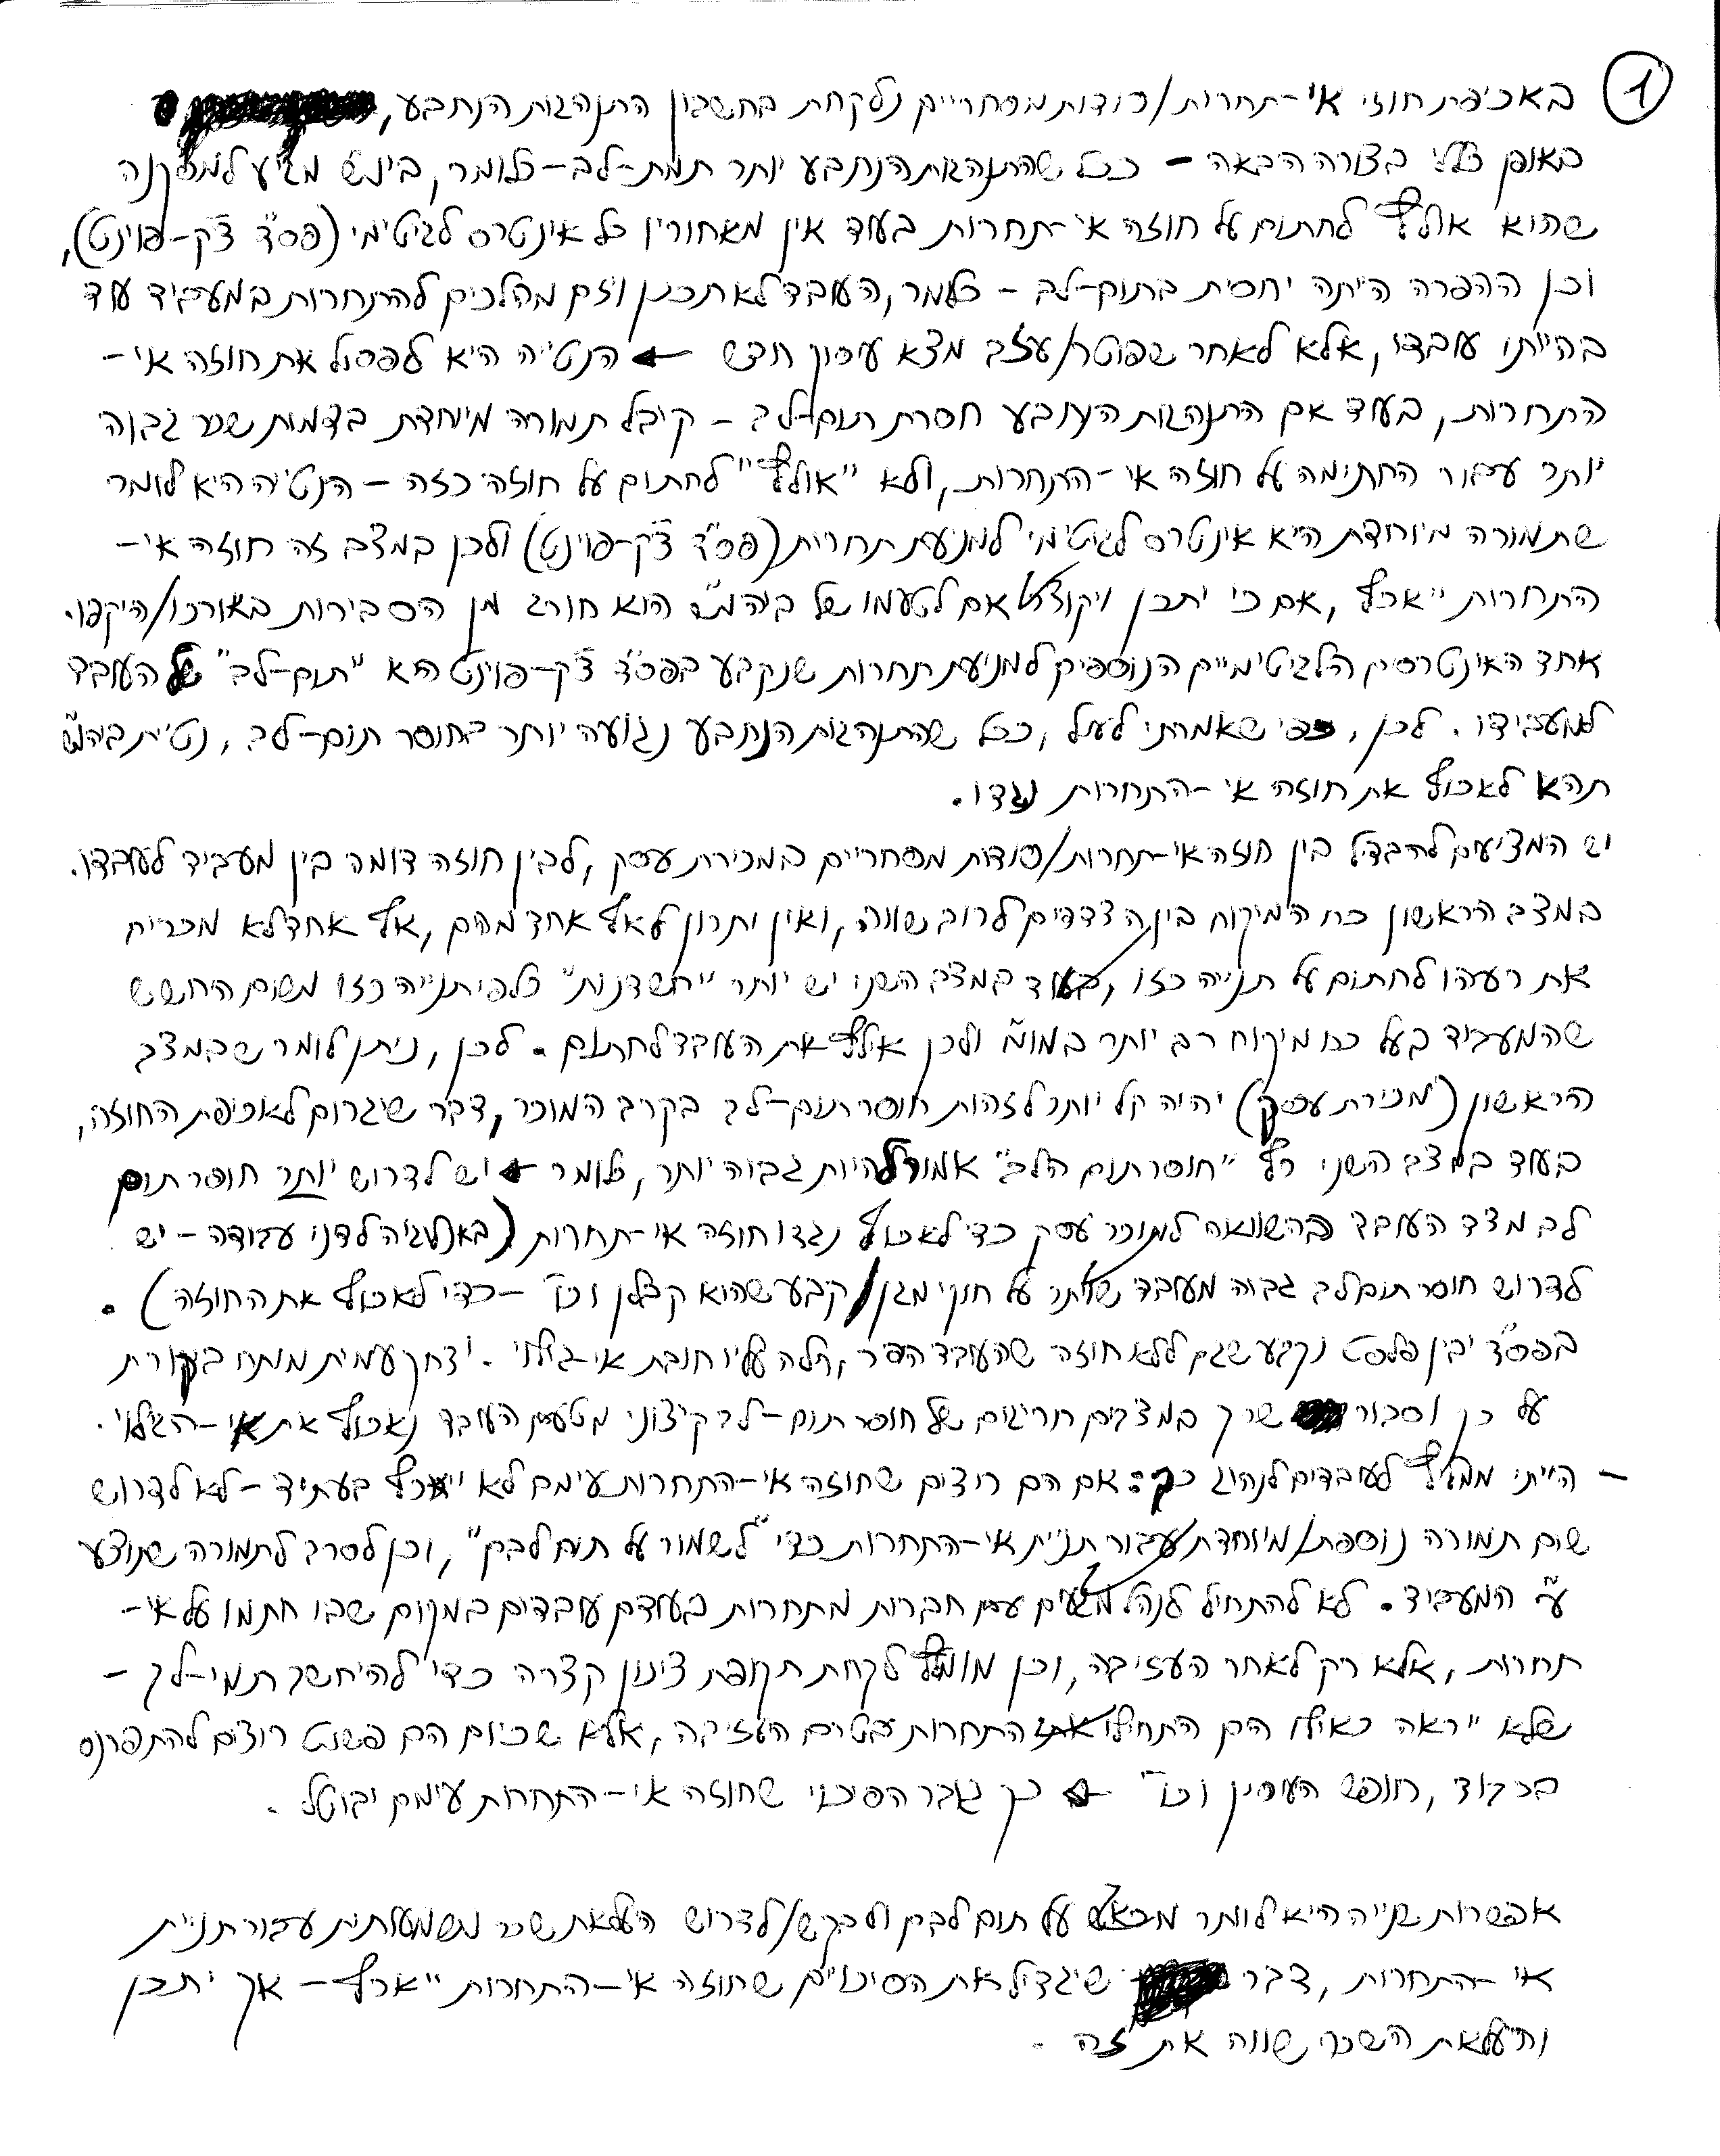 1
באכיפת חוזי אי-תחרות/סודות מסחריים נלקחת בחשבון התנהגות הנתבע,
באופן כללי בצורה הבאה – ככל שהתנהגות הנתבע יותר תמת-לב – כלומר, בימ"ש מגיע למסקנה
שהוא אולץ לחתום על חוזה אי-תחרות בעוד אין מאחוריו כל אינטרס לגיטימי (פס"ד צ'ק-פוינט),
וכן ההפרה הייתה יחסית בתום-לב – כלומר, העובד לא תכנן ויזם מהלכים להתחרות במעביד עוד
בהיותו עובדו, אלא לאחר שפוטר/עזב מצא עיסוק חדש ← הנטייה היא לפסול את חוזה אי-
התחרות, בעוד אם התנהגות הנתבע חסרת תום-לב – קיבל תמורה מיוחדת בדמות שכר גבוה
יותר עבור החתימה על חוזה אי-התחרות, ולא "אולץ" לחתום על חוזה כזה – הנטייה היא לומר
שתמורה מיוחדת היא אינטרס לגיטימי למניעת תחרות (פס"ד צ'ק-פוינט) ולכן במצב זה חוזה אי-
התחרות ייאכף, אם כי יתכן ויקוצץ אם לטעמו של ביהמ"ש הוא חורג מן הסבירות באורכו/היקפו.
אחד האינטרסים הלגיטימיים הנוספים למניעת תחרות שנקבע בפס"ד צ'ק-פוינט הוא "תום-לב" של העובד
למעבידו. לכן, כפי שאמרתי לעיל, ככל שהתנהגות הנתבע נגועה יותר בחוסר תום-לב, נטיית ביהמ"ש
תהא לאכוף את חוזה אי-התחרות נגדו.
יש המציעים להבדיל בין חוזה אי-תחרות/סודות מסחריים במכירת עסק, לבין חוזה דומה בין מעביד לעובדו.
במצב הראשון כח המיקוח בין הצדדים לרוב שווה, ואין יתרון לאף אחד מהם, אף אחד לא מכריח
את רעהו לחתום על תנייה כזו, בעוד במצב השני יש יותר "חשדנות" כלפי תנייה כזו משום החשש
שהמעביד בעל כח מיקוח רב יותר במו"מ ולכן אילץ את העובד לחתום. לכן, ניתן לומר שבמצב
הראשון (מכירת עסק) יהיה קל יותר לזהות חוסר תום-לב בקרב המוכר, דבר שיגרום לאכיפת החוזה,
בעוד במצב השני רף "חוסר תום הלב" אמור להיות גבוה יותר, כלומר ← יש לדרוש יותר חוסר תום
לב מצד העובד בהשוואה למוכר עסק כדי לאכוף נגדו חוזה אי-תחרות (באנלוגיה לדיני עבודה – יש
לדרוש חוסר תום לב גבוה מעובד שוויתר על חוקי מגן/קבע שהוא קבלן וכו' – כדי לאכוף את החוזה).
בפס"ד יבין פלסט נקבע שגם ללא חוזה שהעובד הפיר, חלה עליו חובת אי-גילוי. יצחק עמית מותח ביקורת
על כך וסבור שרק במצבים חריגים של חוסר תום-לב קיצוני מטעם העובד נאכוף את אי-הגילוי.
– הייתי ממליץ לעובדים לנהוג כך: אם הם רוצים שחוזה אי-התחרות עימם לא ייאכף בעתיד – לא לדרוש
שום תמורה נוספת/מיוחדת עבור תניית אי-התחרות כדי "לשמור על תום לבם", וכן לסרב לתמורה שתוצע
ע"י המעביד. לא להתחיל לנהל מגעים עם חברות מתחרות בעודם עובדים במקום שבו חתמו על אי-
תחרות, אלא רק לאחר העזיבה, וכן מומלץ לקחת תקופת צינון קצרה כדי להיחשב תמי-לב –
שלא ייראה כאילו הם התחילו את התחרות בטרם העזיבה, אלא שכיום הם פשוט רוצים להתפרנס
בכבוד, חופש העיסוק וכו' ← כך גובר הסיכוי שחוזה אי-התחרות עימם יבוטל.
אפשרות שנייה היא לוותר מראש על תום לבם ולבקש/לדרוש העלאת שכר משמעותית עבור תניית
אי-התחרות, דבר שיגדיל את הסיכויים שחוזה אי-התחרות ייאכף – אך יתכן
והעלאת השכר שווה את זה.